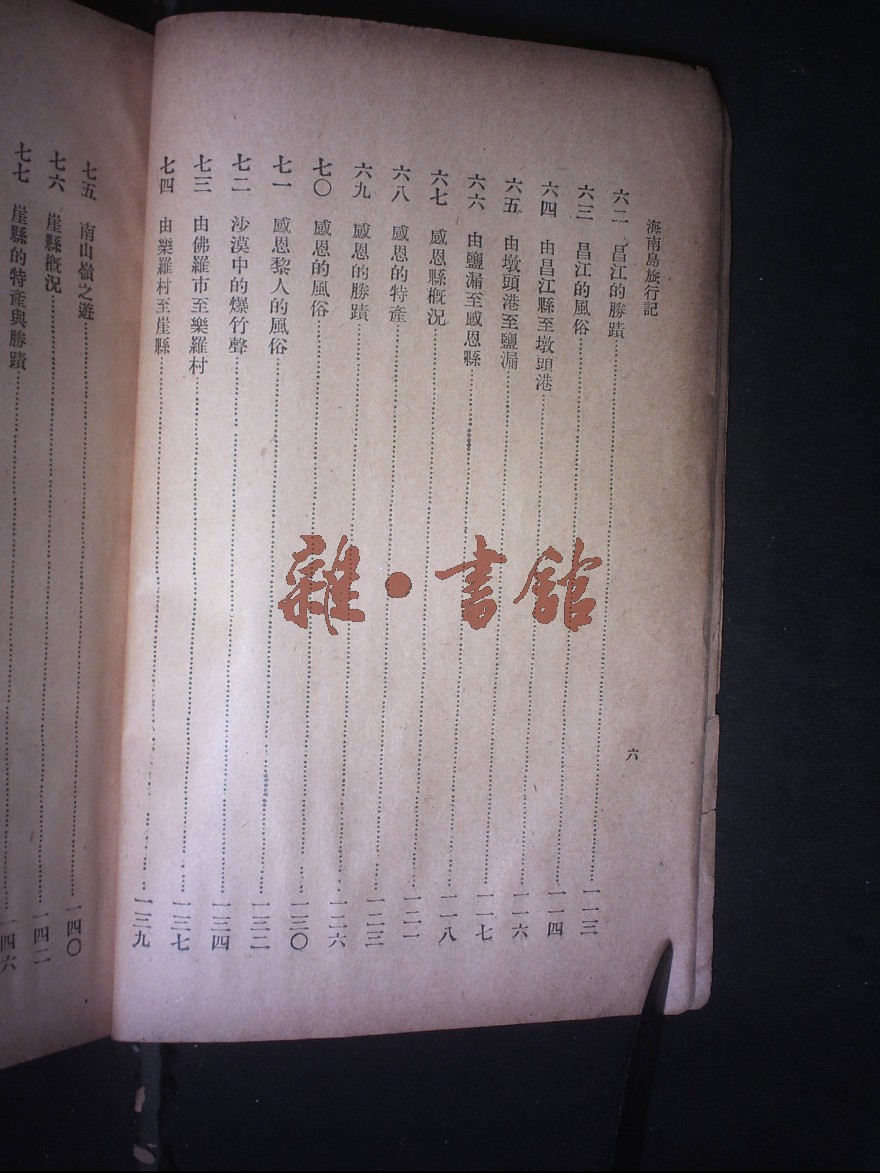 海南島旅行記
六
六二 昌江的勝蹟……一一三
六三 昌江的風俗……一一四
六四 由昌江縣至墩頭港……一一六
六五 由墩頭港至鹽漏……一一七
六六 由鹽漏至感恩縣……一一八
六七 感恩縣概況……一二一
六八 感恩的特產……一二三
六九 感恩的勝蹟……一二六
七〇 感恩的風俗……一三〇
七一 感恩黎人的風俗……一三二
七二 沙漠中的爆竹聲……一三四
七三 由佛羅市至樂羅村……一三七
七四 由樂羅村至崖縣……一三九
七五 南山嶺之遊……一四〇
七六 崖縣概況……一四二
七七 崖縣的特產與勝蹟……一四六
雜·書館